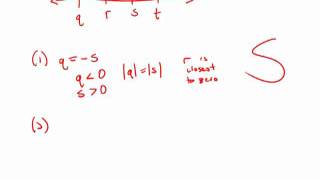 q r s t
(1) q = -s
q < 0
s > 0
|q| = |s|
r is
closest
to zero
S
(2)